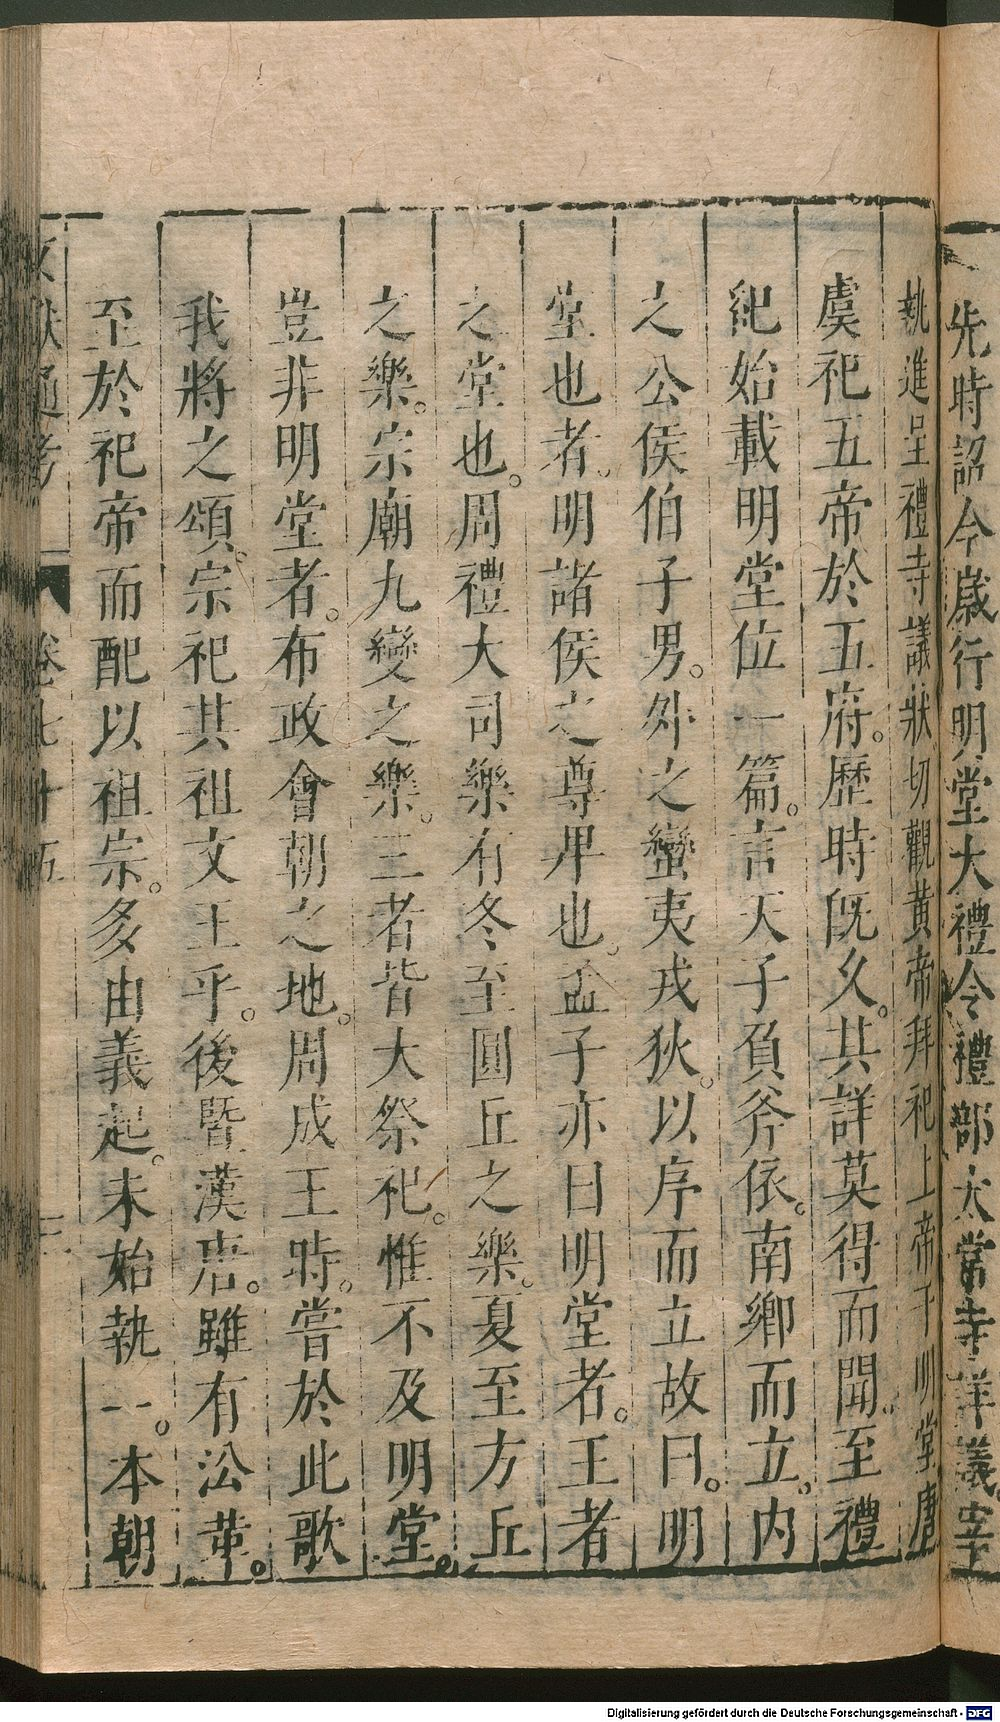 先時詔今歲行明堂大禮令禮部太常寺詳議宰
執進呈禮寺議狀切觀黃帝拜祀上帝于明堂唐
虞祀五帝於五府。歷時旣久。其詳莫得而聞。至禮
紀始載明堂位一篇。言天子負斧依。南鄉而立。內
之公侯伯子男。外之蠻夷戎狄。以序而立故曰。明
堂也者。明諸侯之尊卑也。孟子亦曰明堂者。王者
之堂也。周禮大司樂有冬至圓丘之樂。夏至方丘
之樂。宗廟九變之樂。三者皆大祭祀。惟不及明堂。
豈非明堂者。布政會朝之地。周成王時。嘗於此歌
我將之頌。宗祀其祖文王乎。後暨漢唐。雖有沿革。
至於祀帝而配以祖宗。多由義起。未始執一。本朝
文獻通考 卷七十五
Digitalisierung gefördert durch die Deutsche Forschungsgemeinschaft - DFG